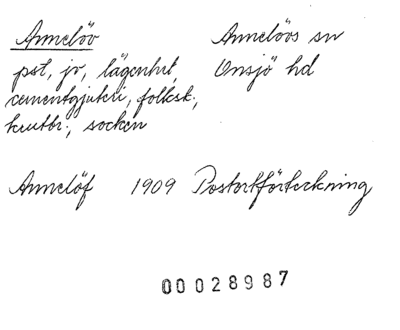 Annelöv Annelövs sn
pst, jv, lägenhet, Onsjö hd
cementgjuteri, folksk.,
lantbr., socken
Annelöf 1909 Postortförteckning
00028987